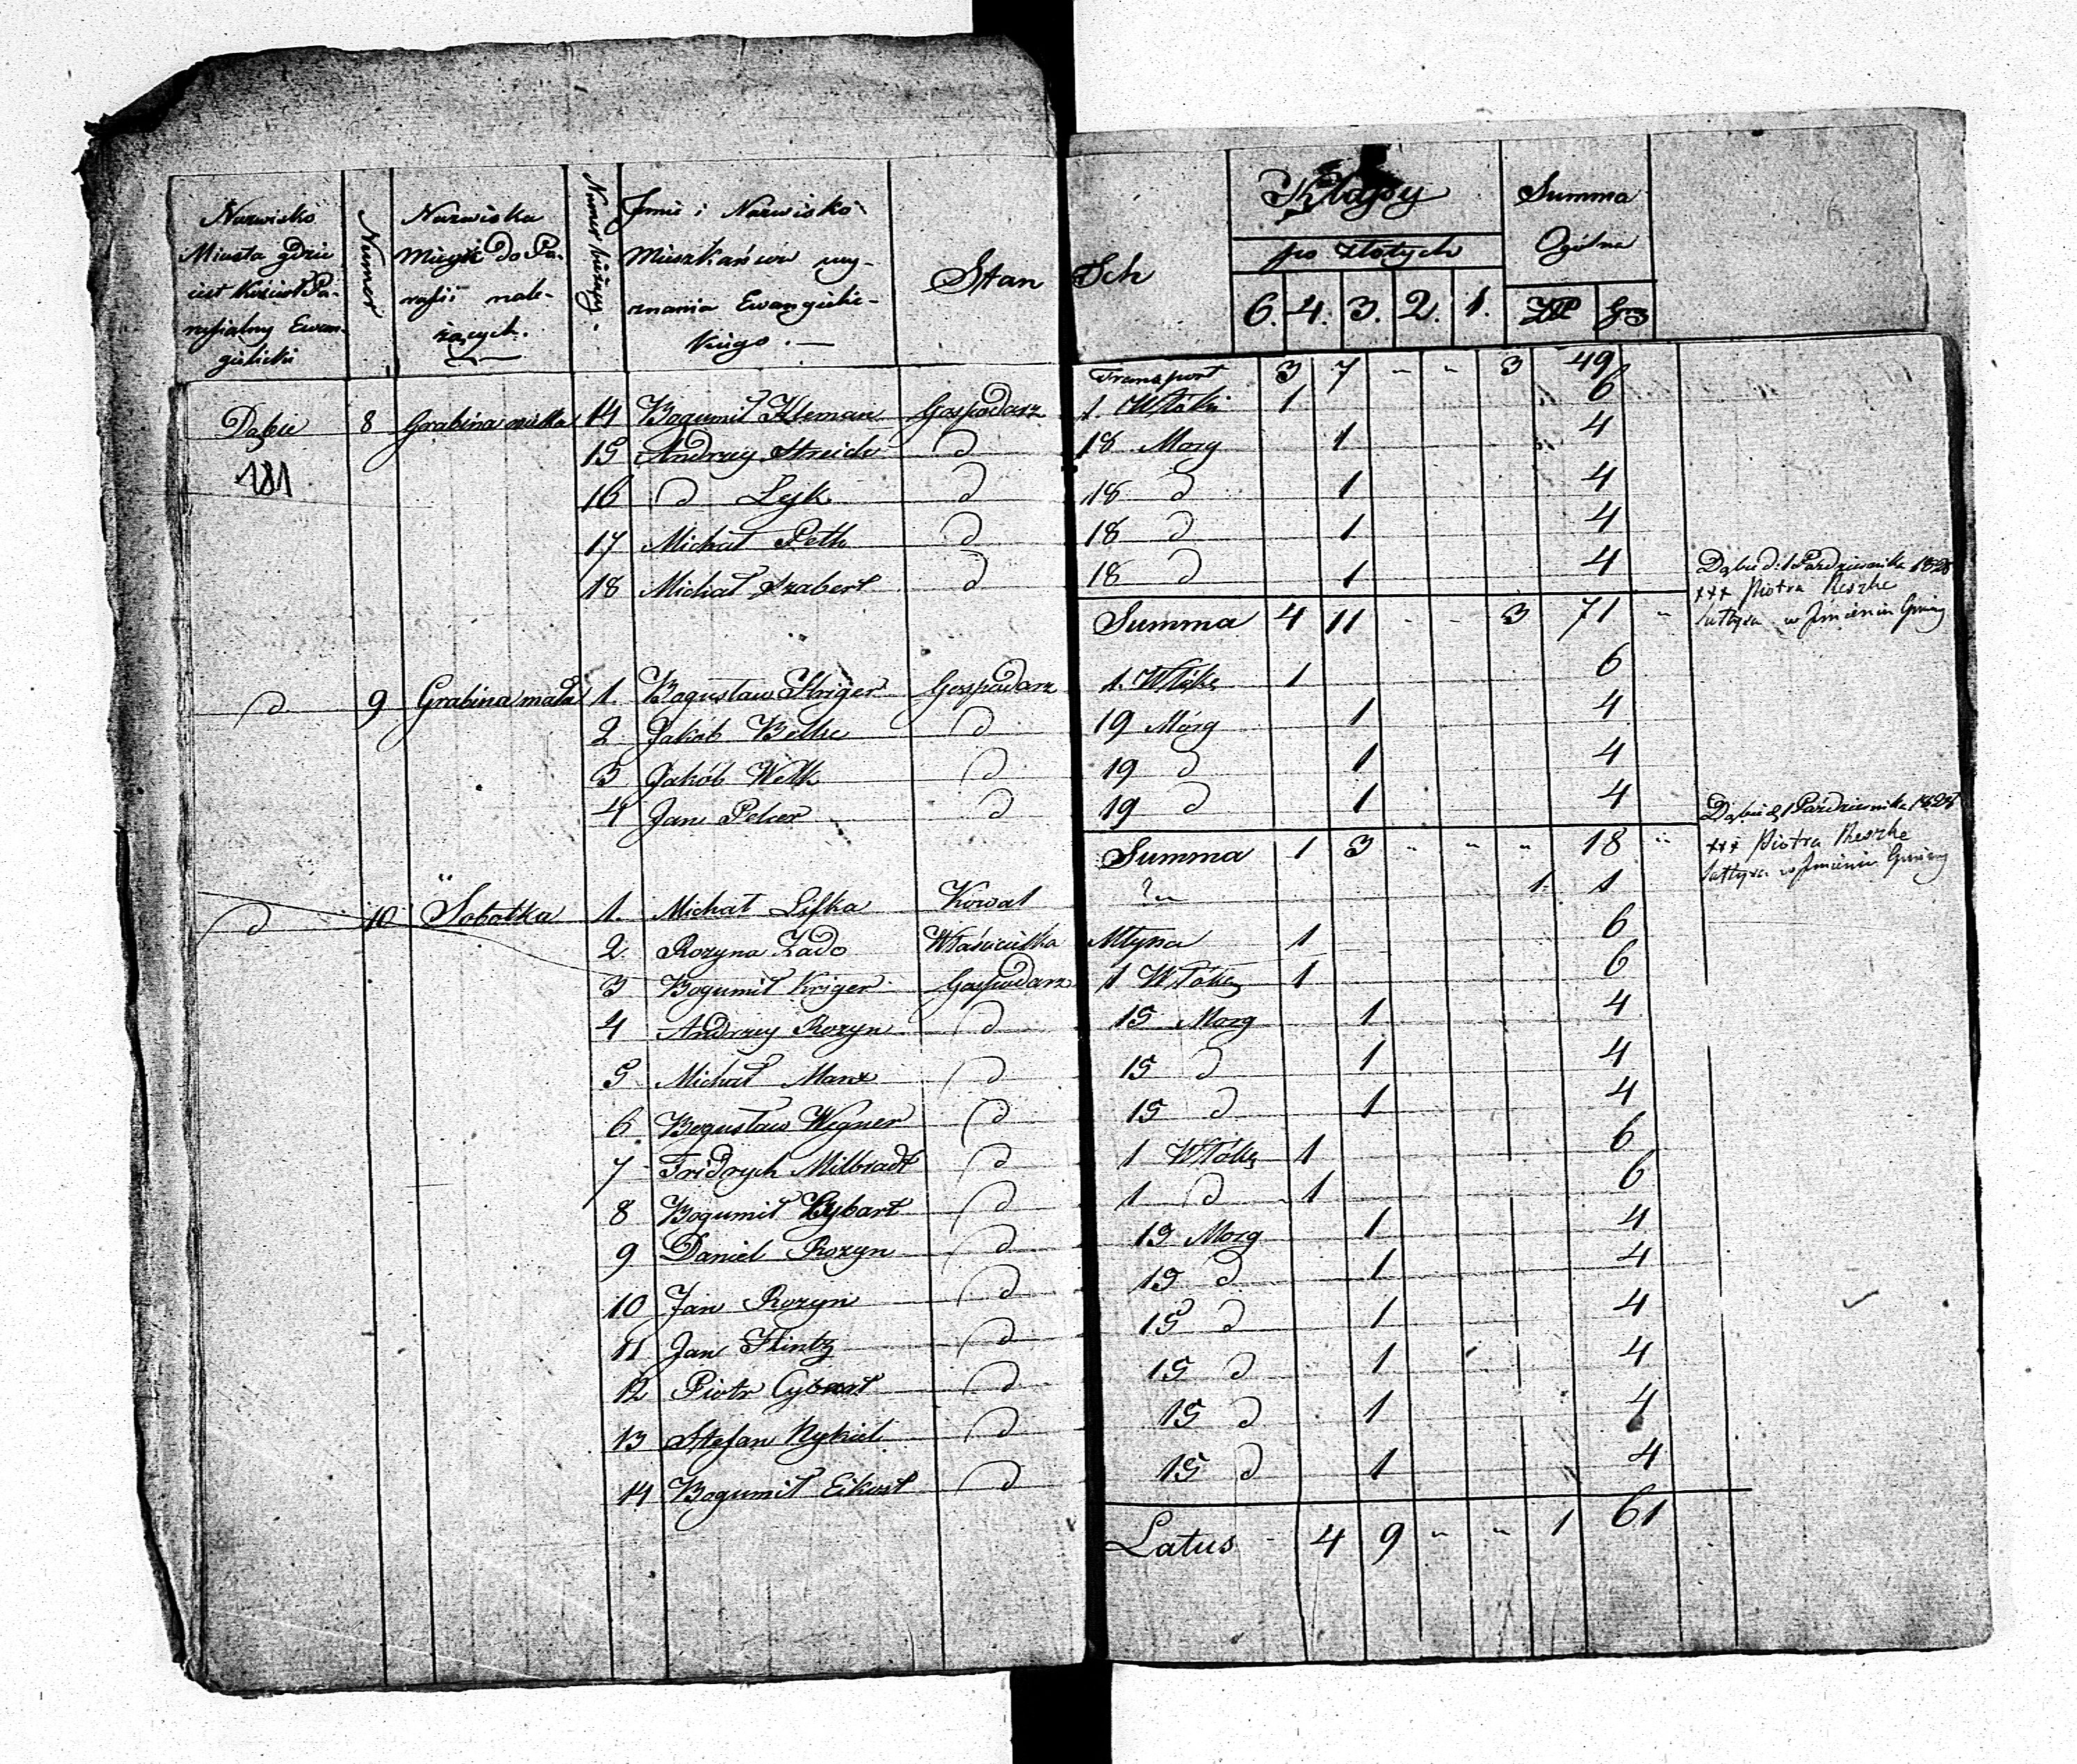 Nazwisko Miasta gdzie iest Kościoł Parafialny Ewangielicki
Numer
Nazwiska Mieysc do Parafii należących.
Numer bieżący.
Imie i Nazwisko Mieszkańców wyznania Ewangielickiego.
Stan
Sch
Klassy
po złotych
6. 4. 3. 2. 1.
Summa Ogólna
ZłP Grg
Transport 3 7 " " 3 49
Dąbie 8 Grabina wielka 14 Bogumił Kleman Gospodarz 1. Włóki 1 6
181
15 Andrzey Streich d 18 Morg 1 4
16 d Lejk d 18 d 1 4
17 Michał Peth d 18 d 1 4
18 Michał Szabert d 18 d 1 4
Summa 4 11 - - 3 71 "
Dąbie d. 1 Pazdziernika 1828
+++ Piotra Reszke
Sołtysa w Imieniu Gminy
d 9 Grabina mała 1. Bogusław Kriger Gospodarz 1. Włóke 1 6
2 Jakób Belke d 19 Mórg 1 4
3 Jakób Welk d 19 d 1 4
4 Jan Pelcer d 19 d 1 4
Summa 1 3 " " " 18 "
Dąbie d. 1 Pazdziernika 1828
+++ Piotra Reszke
Sołtysa w Imieniu Gminy
d 10 Sobotka 1. Michał Lifka Kowal 1. 1
2. Rozyna Zado Właścicielka Młyna 1 6
3 Bogumił Kriger Gospodarz 1 Włóke 1 6
4 Andrzey Rozyn d 15 Morg 1 4
5 Michał Marx d 15 d 1 4
6 Bogusław Wegner d 15 d 1 4
7 Fridrych Milbradt d 1 Włóke 1 6
8 Bogumił Cybart d 1 d 1 6
9 Daniel Rozyn d 15 Morg 1 4
10 Jan Rozyn d 15 d 1 4
11 Jan Flintz d 15 d 1 4
12 Piotr Cybart d 15 d 1 4
13 Stefan Rykiel d 15 d 1 4
14 Bogumił Eikert d 15 d 1 4
Latus 4 9 " " 1 61